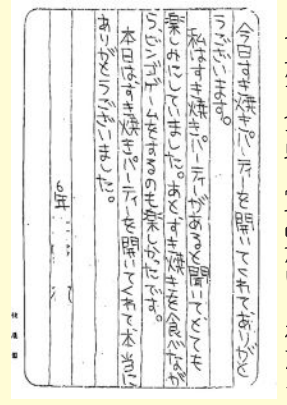 今日すき焼きパーティーを開いてくれてありがと
うございます。
私はすき焼きパーティーがあると聞いて、とても
楽しみにしていました。あとすき焼きを食べなが
ら、ビンゴゲームをするのも楽しかったです。
本日は、すき焼きパーティーを開いてくれて本当に
ありがとうございました。
6年